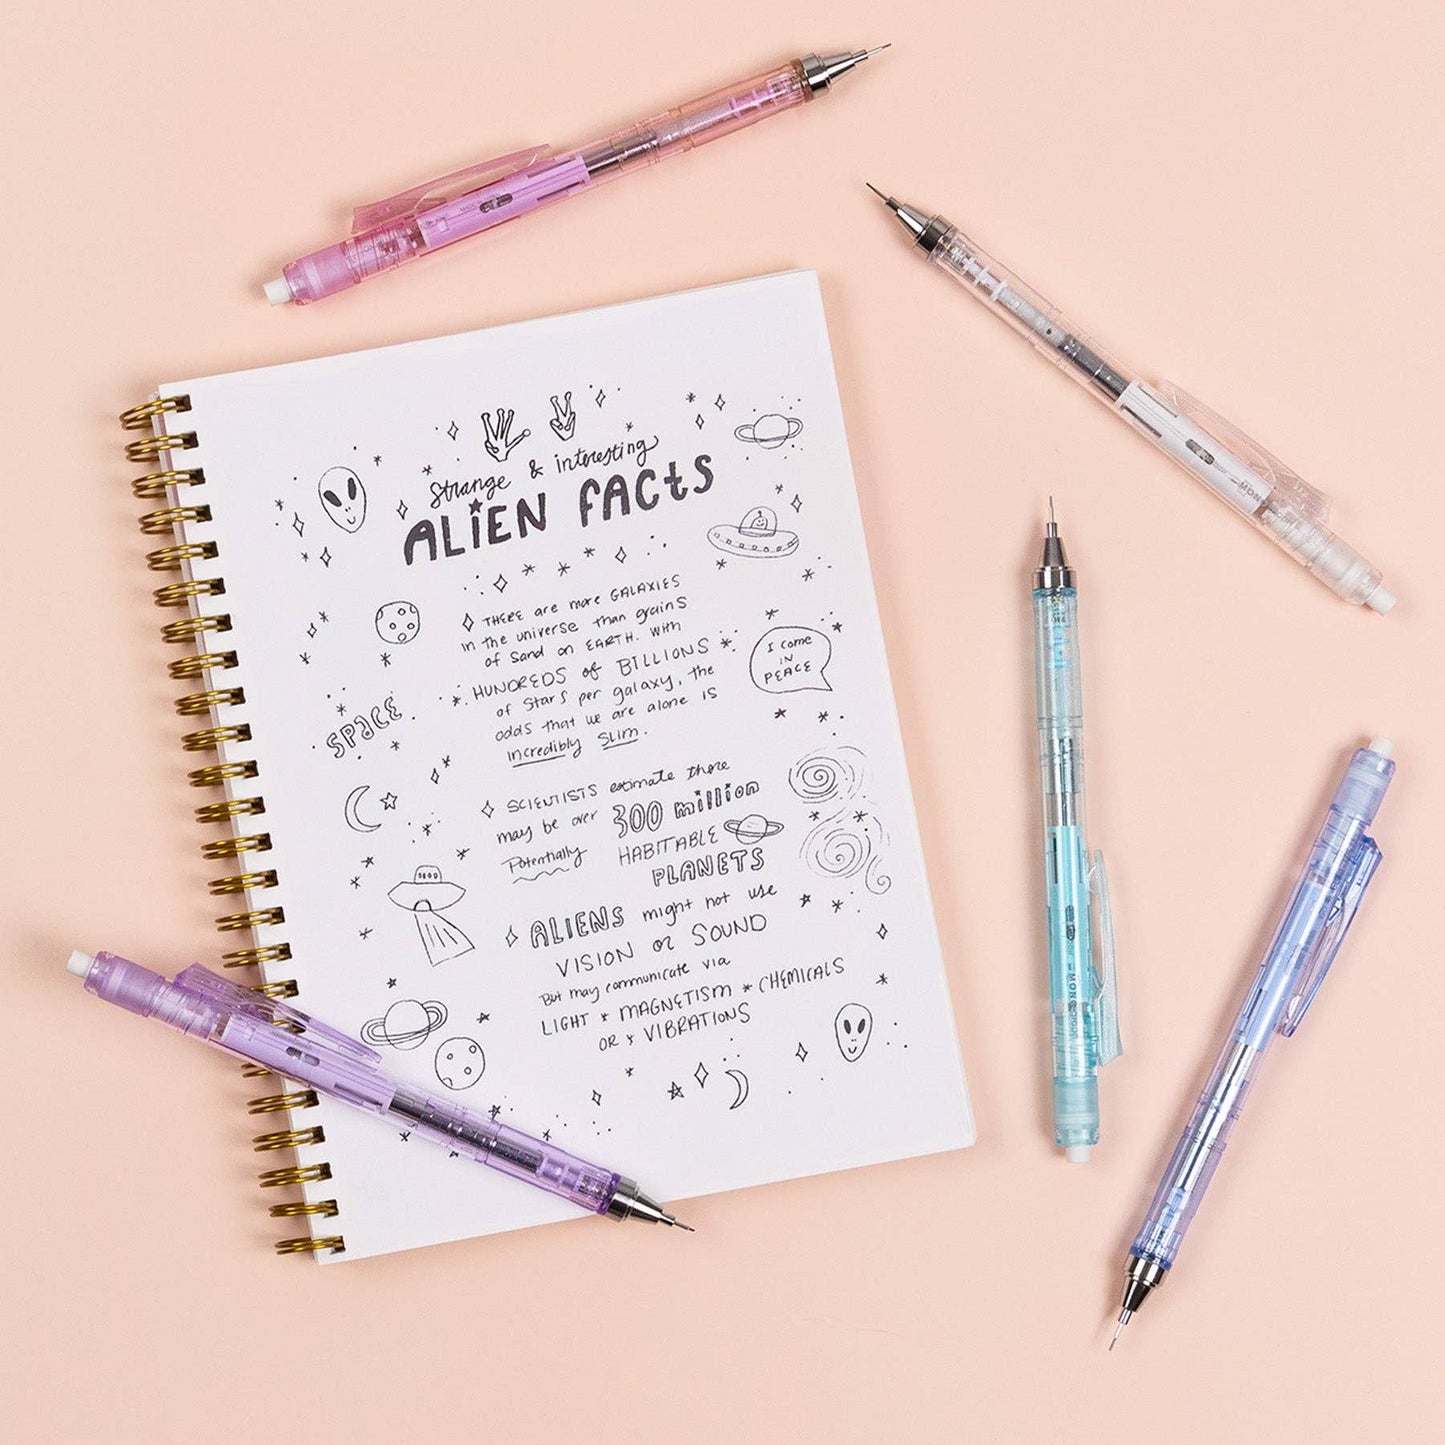 Strange & interesting
ALiEN FACtS
THERE are more GALAXIES
in the universe than grains
of sand on EARTH. With
HUNDREDS of BILLIONS
of stars per galaxy, the
odds that we are alone is
incredibly SLIM.
I come
IN
PEACE
SPACE
SCIENTISTS estimate there
may be over 300 million
Potentially HABITABLE
PLANETS
ALIENS might not use
VISION or SOUND
But may communicate via
LIGHT * MAGNETISM * CHEMICALS
OR * VIBRATIONS
MONO